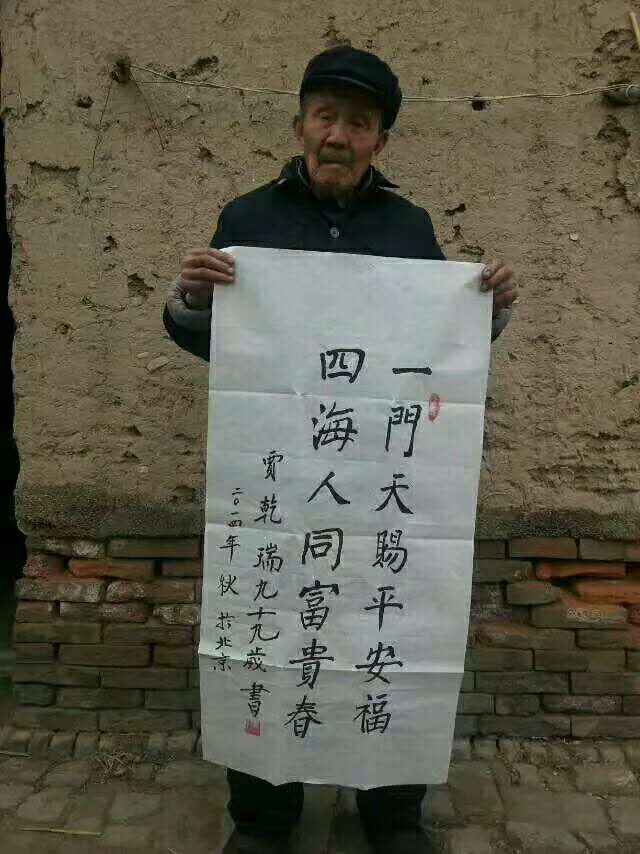 一門天賜平安福
四海人同富貴春
賈乾瑞九十九歲書
二〇一四年秋於北京